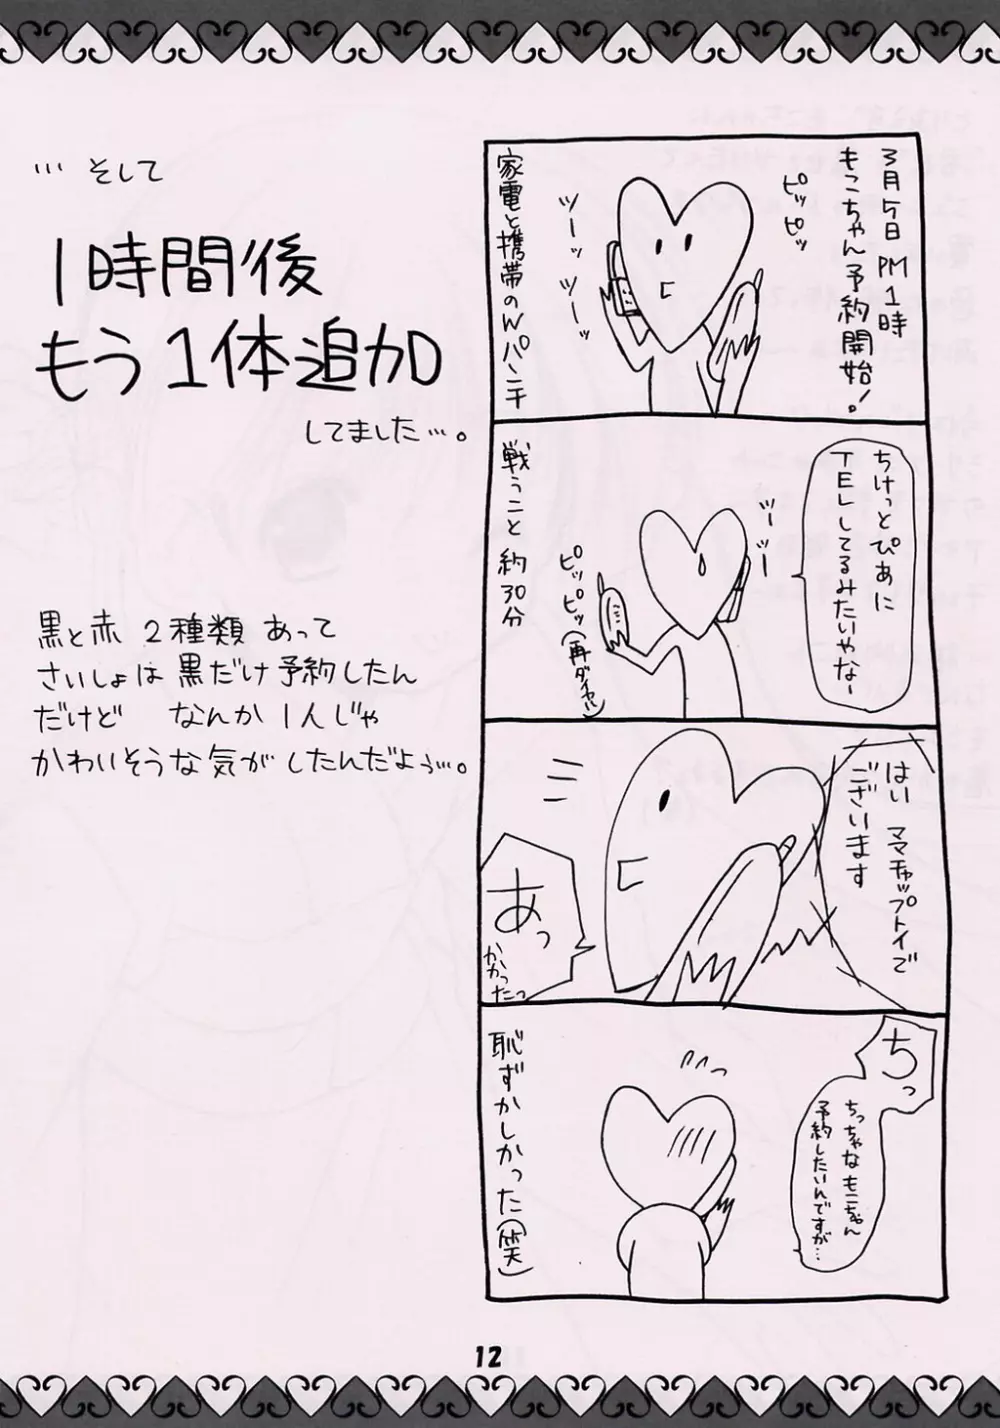 3月5日PM1時
もこちゃん予約開始!
ピッピッ
ツーッツーッ
家電と携帯のWパンチ
ちけっとぴあに
TELしてるみたいやなー
ツーツー
ピッピッ(再ダイヤル)
戦うこと 約30分
はい ママチャップトイで
ございます
あっ
かかったっ
ちっ
ちっちゃなもこちゃん
予約したいんですが…
恥ずかしかった(笑)
… そして
1時間後
もう1体追加
してました…。
黒と赤 2種類 あって
さいしょは黒だけ予約したん
だけど なんか1人じゃ
かわいそうな気がしたんだよぅ…。
12